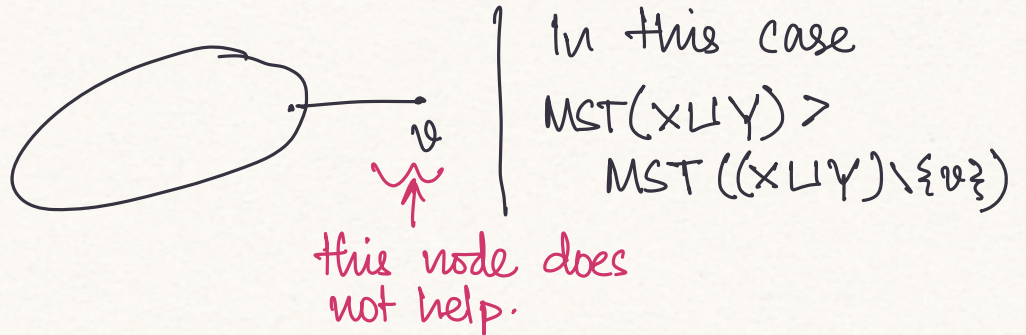 v
this node does
not help.
In this case
MST(X⊔Y) >
MST((X⊔Y)\{v})